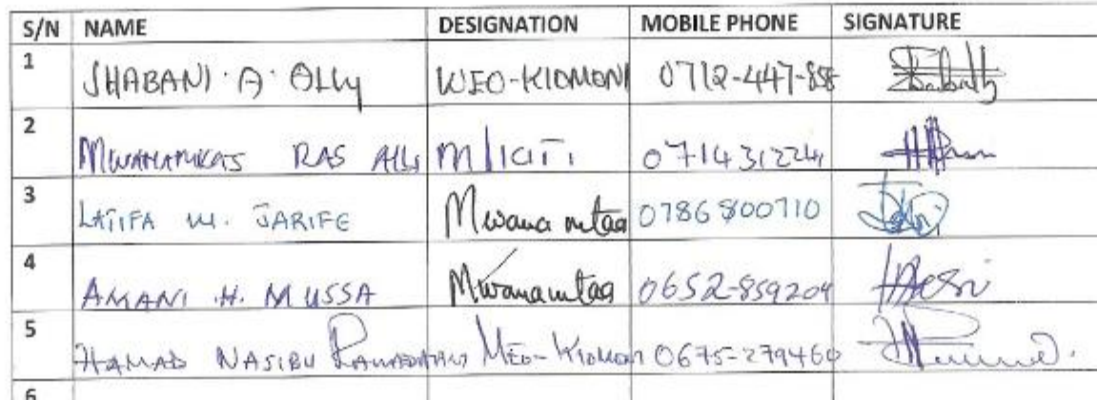 S/N NAME DESIGNATION MOBILE PHONE SIGNATURE
1 SHABANI A. OLLY WEO-KIOMONI 0712-447-858
2 RAS M/KITI 0714312241
3 LATIFA M. JARIFE Mwanamtaa 0786800710
4 AMANI H. MUSSA Mwanamtaa 0652-859204
5 HAMAD NASIBU RAMADHANI MEO-KIOMONI 0675-279460
6